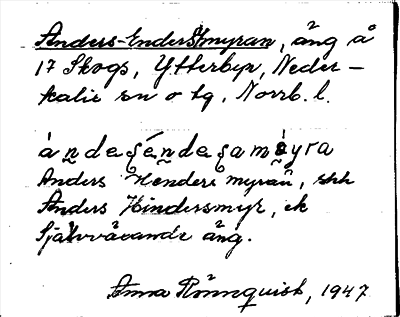 Anders-Enders myran, äng å
17 Skogs, Ytterbyn, Neder-
kalix sn o tg, Norrb. l.
Anders Henders myran, shh
Anders Hindersmyr, ek
Självvävande äng.
Anna Rönnquist, 1947